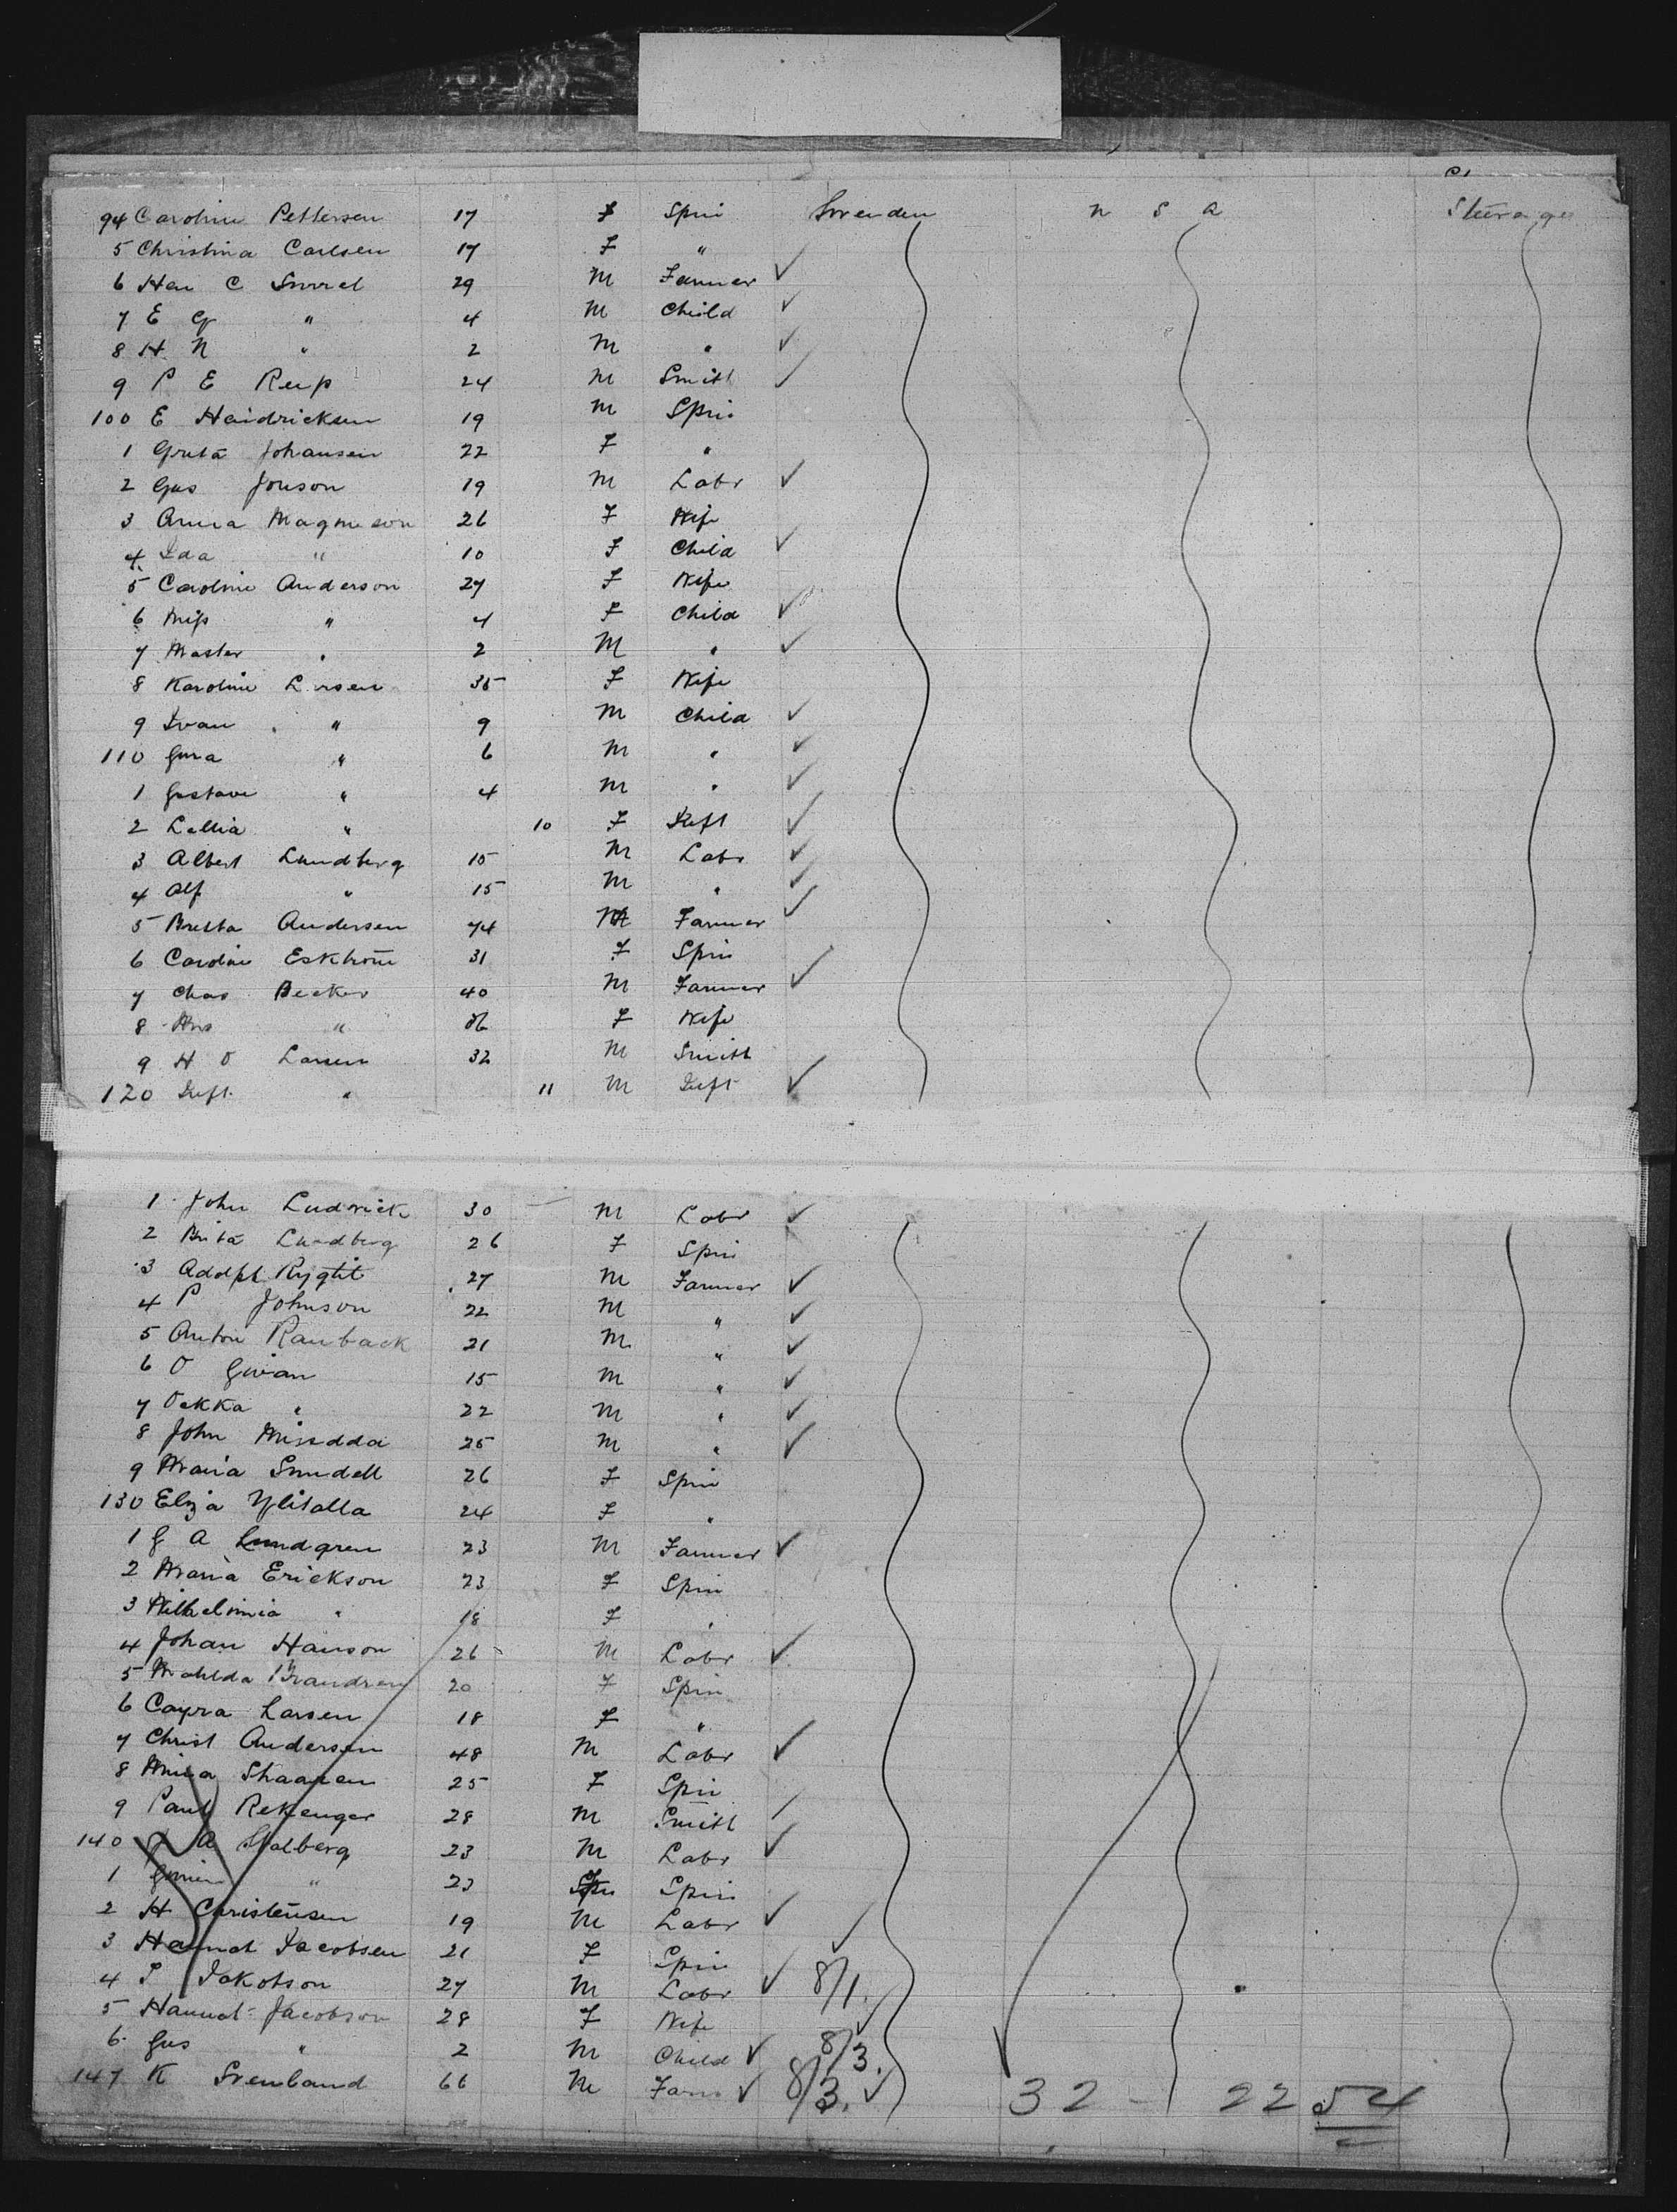 94 Caroline Pettersen 17 F Spin Sweeden U S A Steerage
5 Christina Carlsen 17 F "
6 Han C 29 M Farmer ✓
7 E G " 4 M Child ✓
8 H N " 2 M " ✓
9 P E 24 M Smith ✓
100 E Hendricksen 19 M Spin
1 Greta Johansen 22 F "
2 Gus Jonson 19 M Labr ✓
3 Anna Magneson 26 F Wife
4 Ida " 10 F Child ✓
5 Caroline Anderson 27 F Wife
6 Miss " 4 F Child ✓
7 Master " 2 M " ✓
8 Karoline Larsen 35 F Wife
9 Ivan " 9 M Child ✓
110 " 6 M " ✓
1 Gustave " 4 M " ✓
2 " 10 F Inft ✓
3 Albert Lundberg 15 M Labr ✓
4 Alf " 15 M " ✓
5 Andersen 74 M Farmer ✓
6 Caroline Eskhom 31 F Spin
7 Chas Becker 40 M Farmer ✓
8 Mrs " 36 F Wife
9 H O Larsen 32 M Smith
120 Inft. " 11 M Inft ✓
1 John Ludwick 30 M Labr ✓
2 Brita Lundberg 26 F Spin
3 Adolph 27 M Farmer ✓
4 P Johnson 22 M " ✓
5 Anton Ranback 21 M " ✓
6 O 15 M " ✓
7 " 22 M " ✓
8 John 25 M " ✓
9 Maria 26 F Spin
130 Eliza Ylitalla 24 F "
1 G A Lundgren 23 M Farmer ✓
2 Maria Erickson 23 F Spin
3 Wilhelmia " 18 F "
4 Johan Hanson 26 M Labr ✓
5 20 F Spin
6 Larsen 18 F "
7 Christ Andersen 48 M Labr ✓
8 25 F Spin
9 Paul 28 M Smith ✓
140 A Stalberg 23 M Labr ✓
1 " 23 Spin
2 H Christensen 19 M Labr ✓
3 Hannah Jacobsen 21 F Spin ✓
4 Jakobson 27 M Labr ✓ 8/1.
5 Hannah Jacobson 28 F Wife ✓
6 Gus " 2 M Child ✓ 8/3.
147 K 66 M Farm ✓ 8/3. ✓ 32 - 22 54